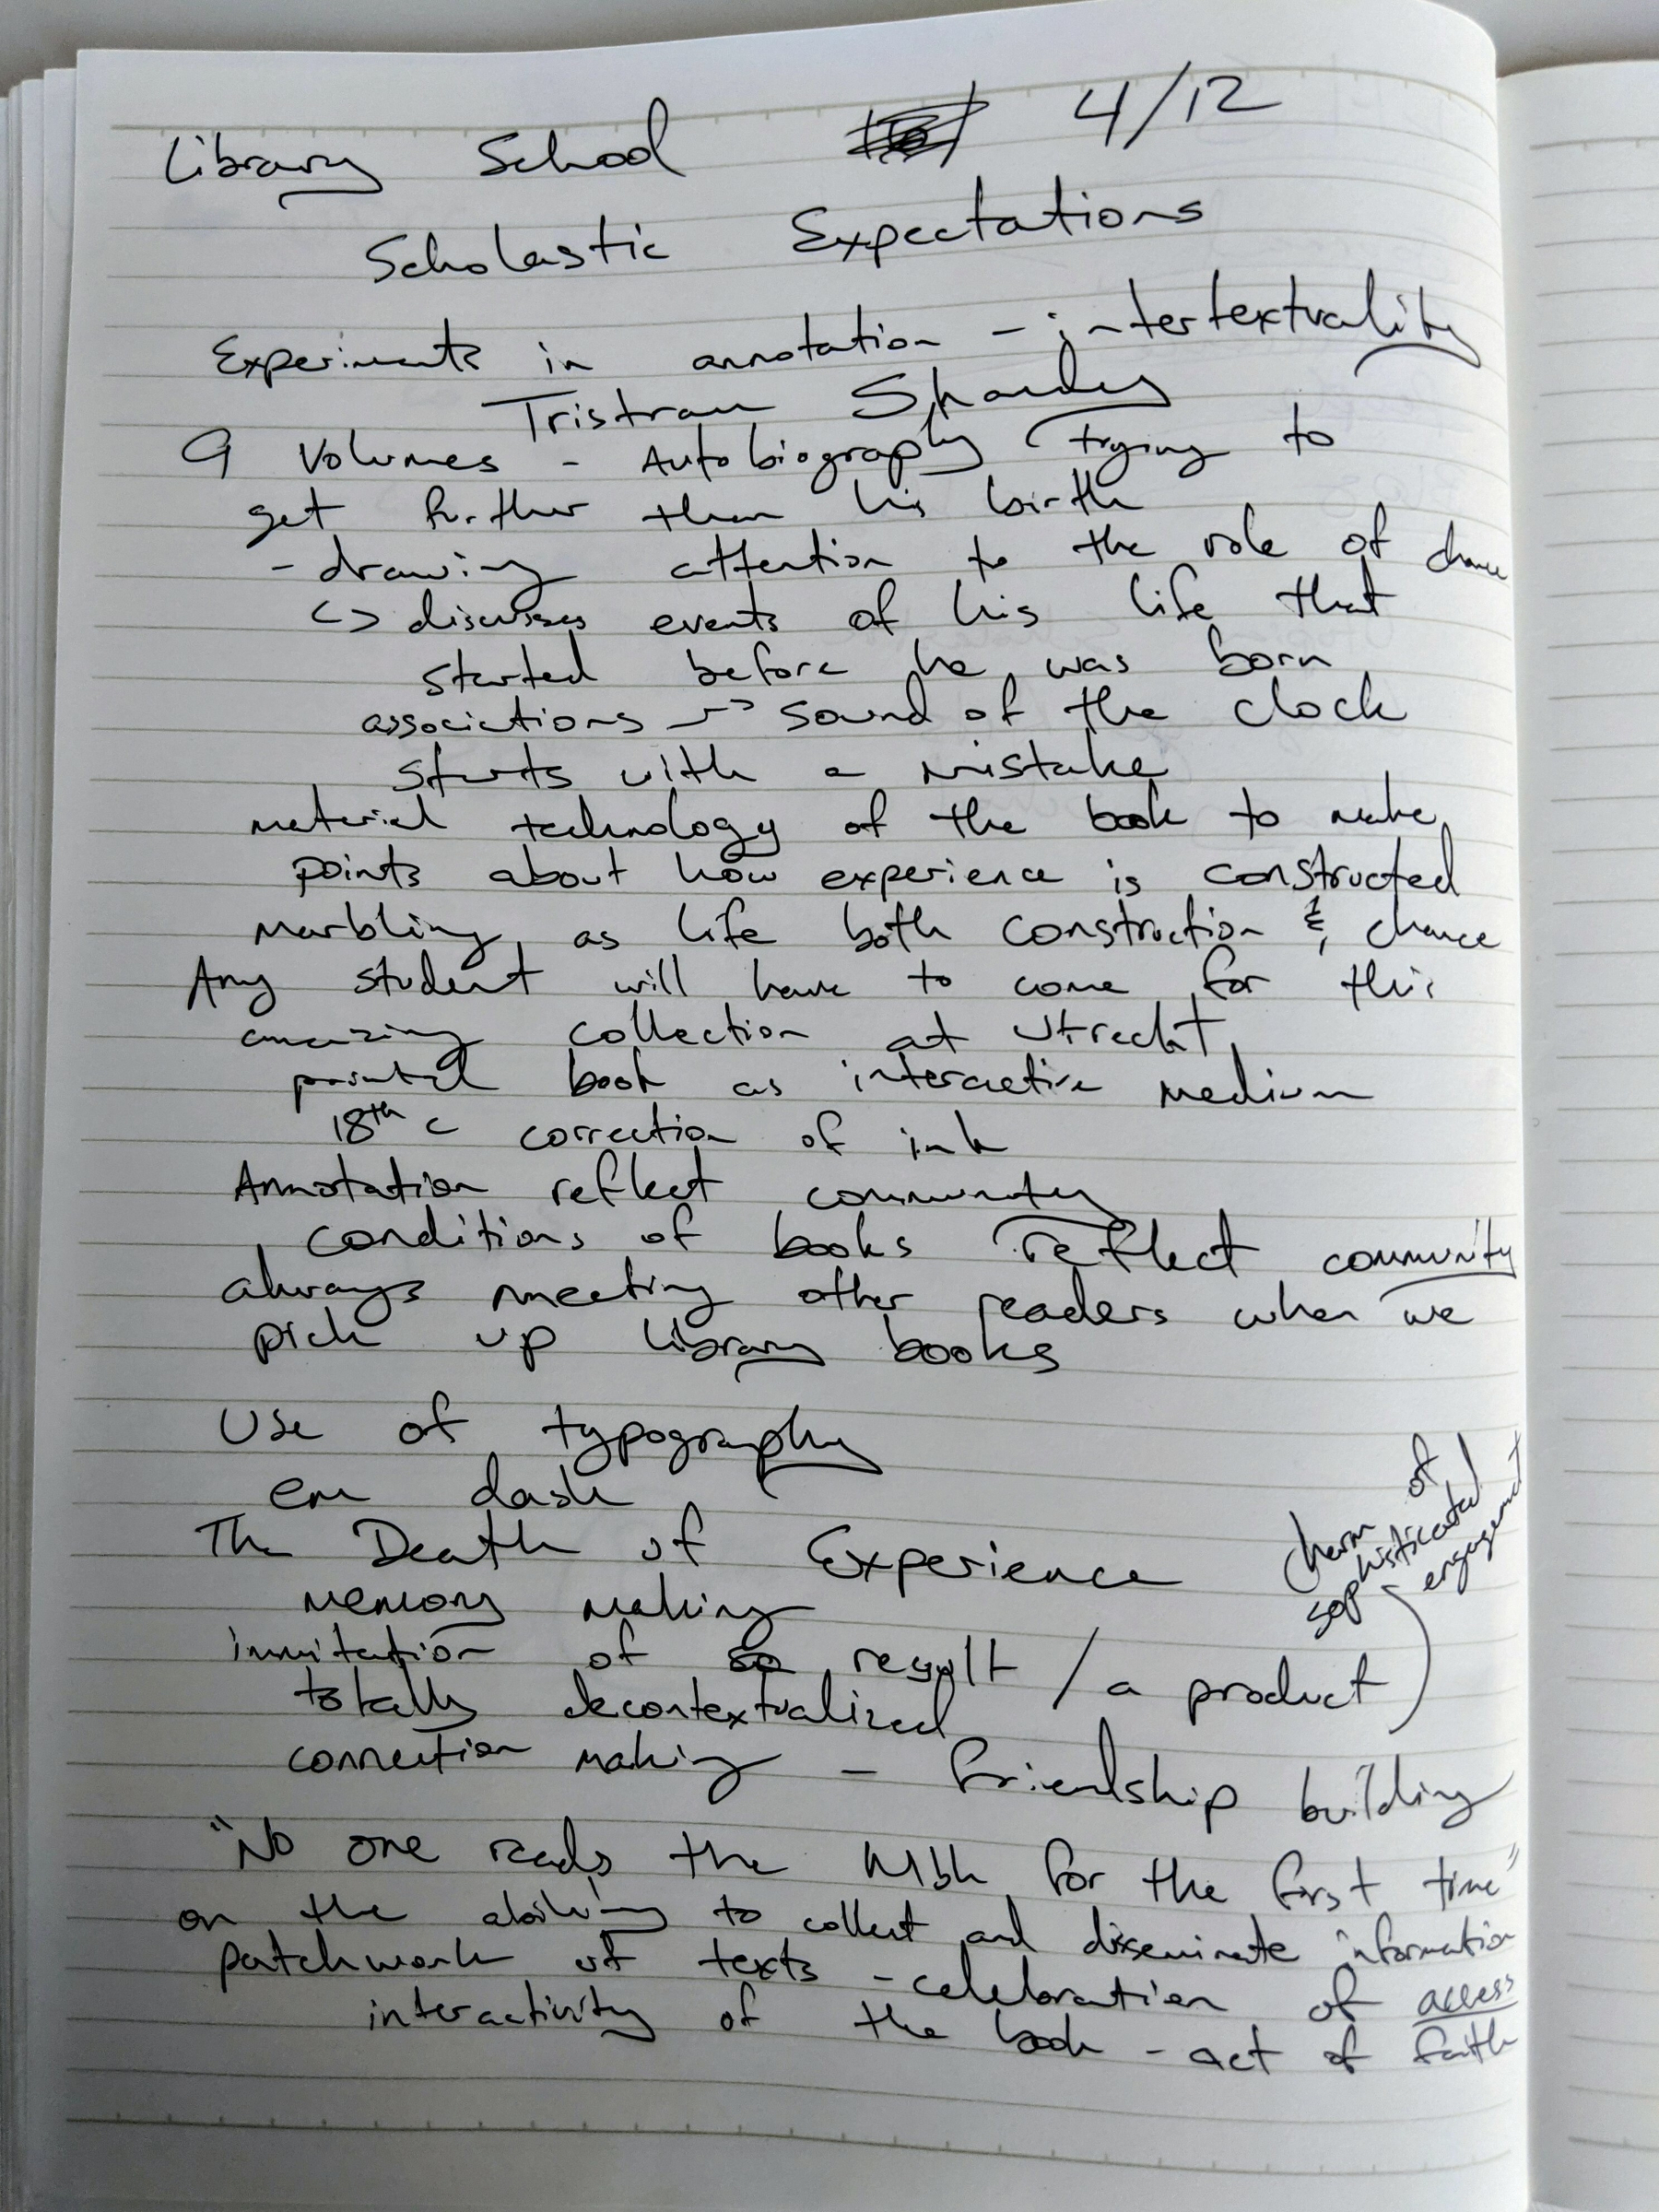 Library School 4/12
Scholastic Expectations
Experiments in annotation - intertextuality
Tristram Shandy
9 Volumes - Autobiography trying to
get further than his birth
- drawing attention to the role of chance
↳ discusses events of his life that
started before he was born
associations → sound of the clock
starts with a mistake
material technology of the book to make
points about how experience is constructed
marbling as life both construction & chance
Any student will have to come for this
amazing collection at Utrecht
printed book as interactive medium
18th c correction of ink
Annotation reflect community
conditions of books reflect community
always meeting other readers when we
pick up library books
Use of typography
em dash
The Death of Experience
charm of
sophisticated
engagement
memory making
immitation of result / a product
totally decontextualized
connection making - friendship building
"No one reads the for the first time"
on the ability to collect and disseminate information
patchwork of texts - celebration of access
interactivity of the book - act of faith